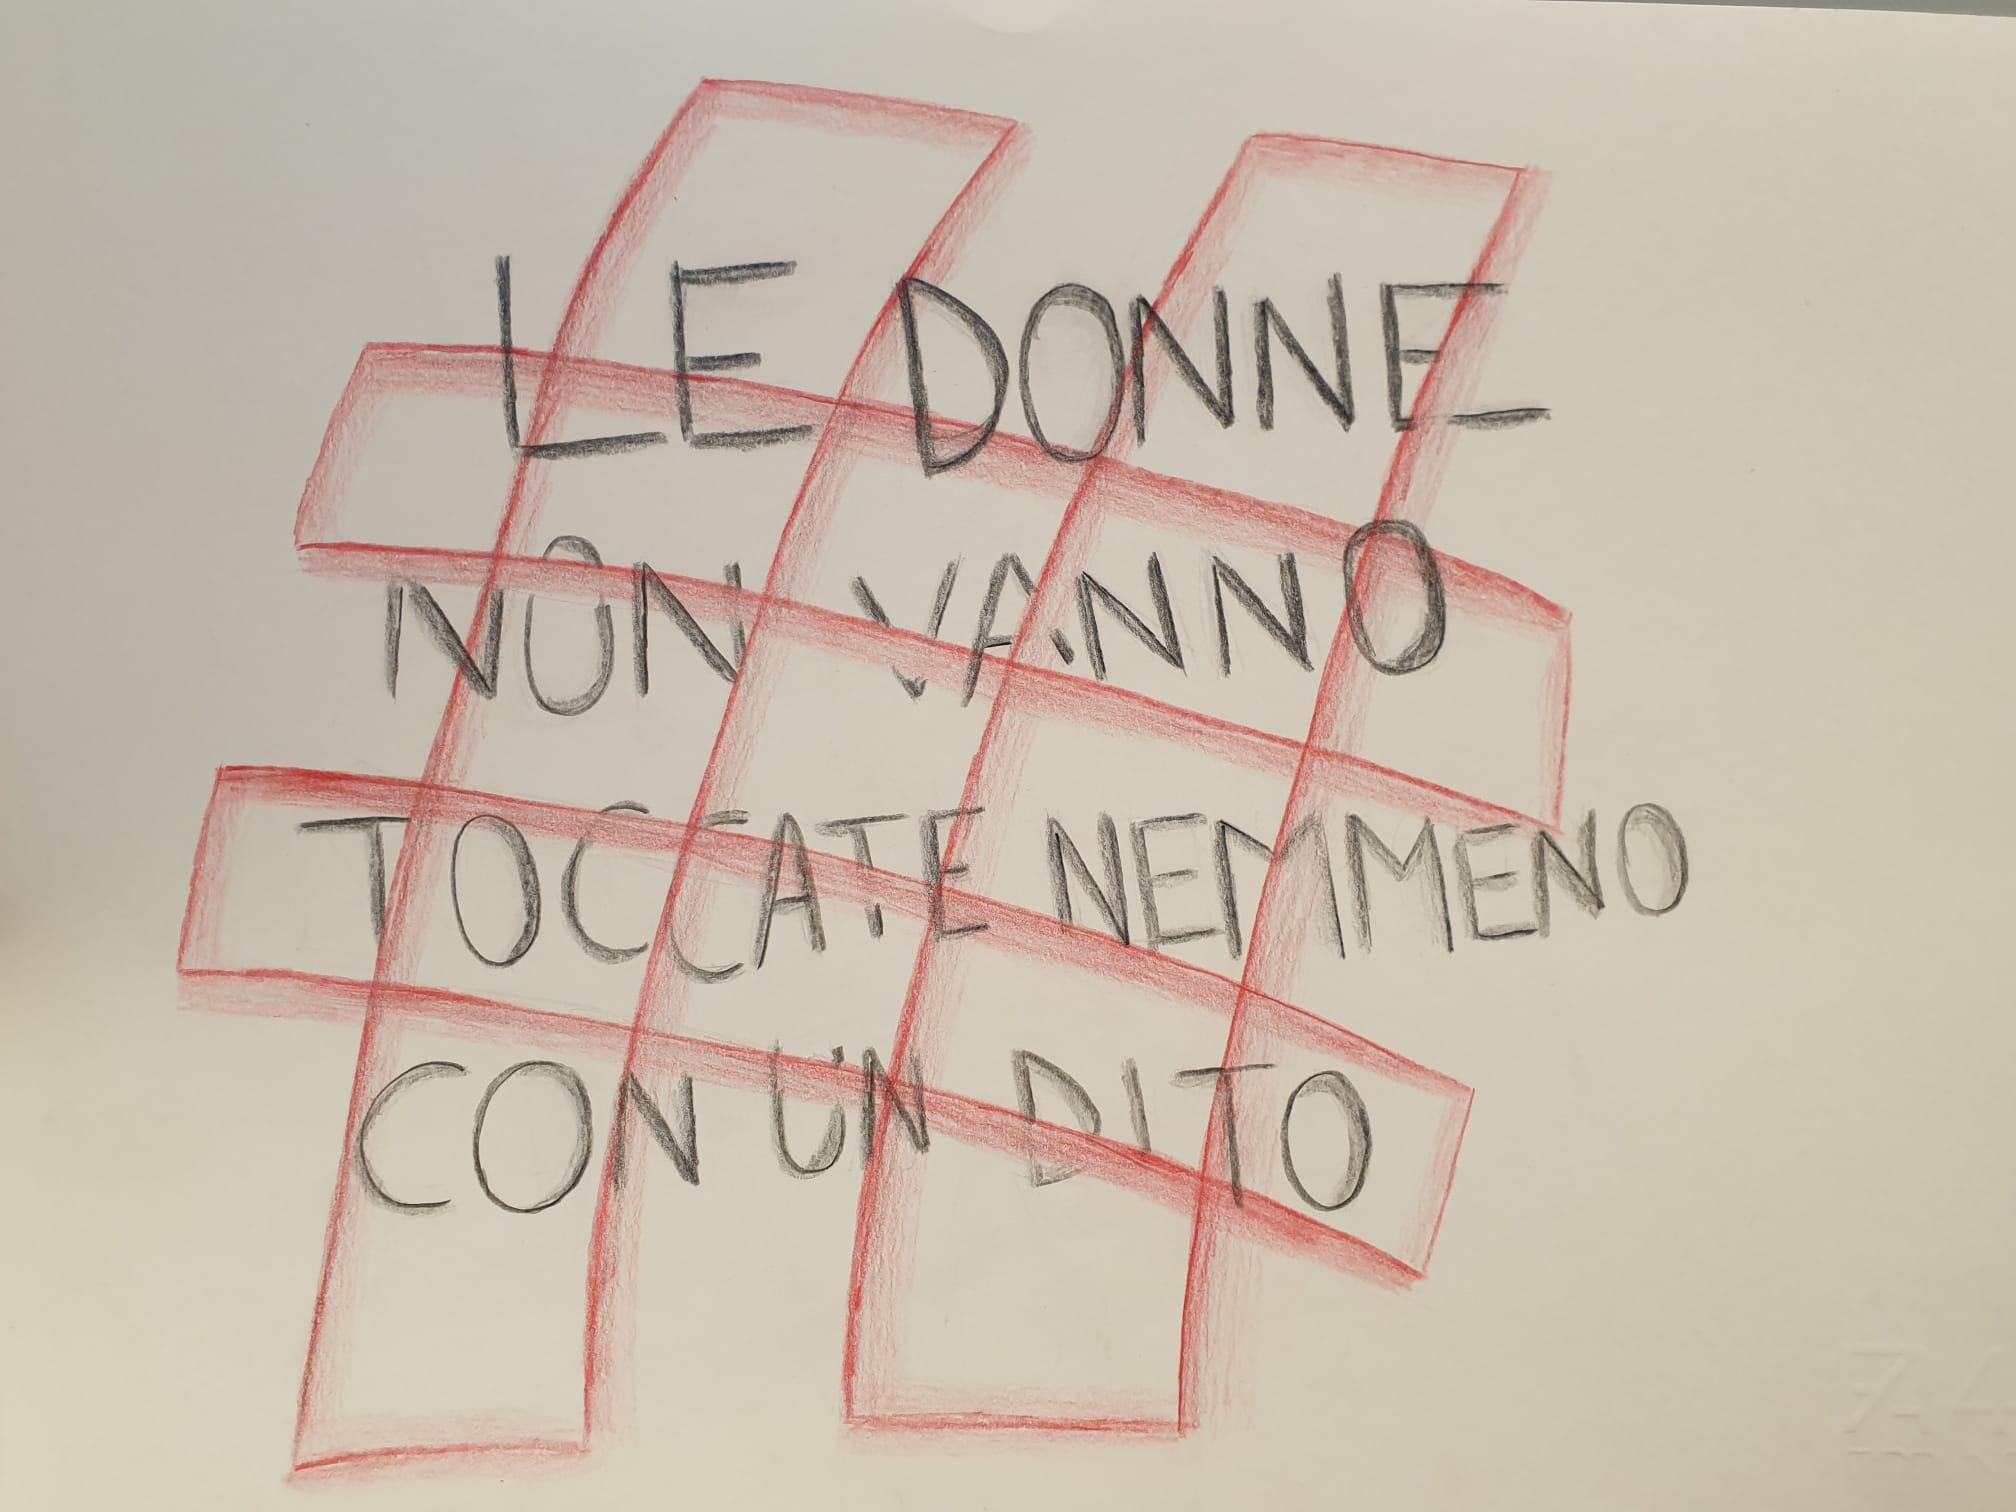 LE DONNE
NON VANNO
TOCCATE NEMMENO
CON UN DITO